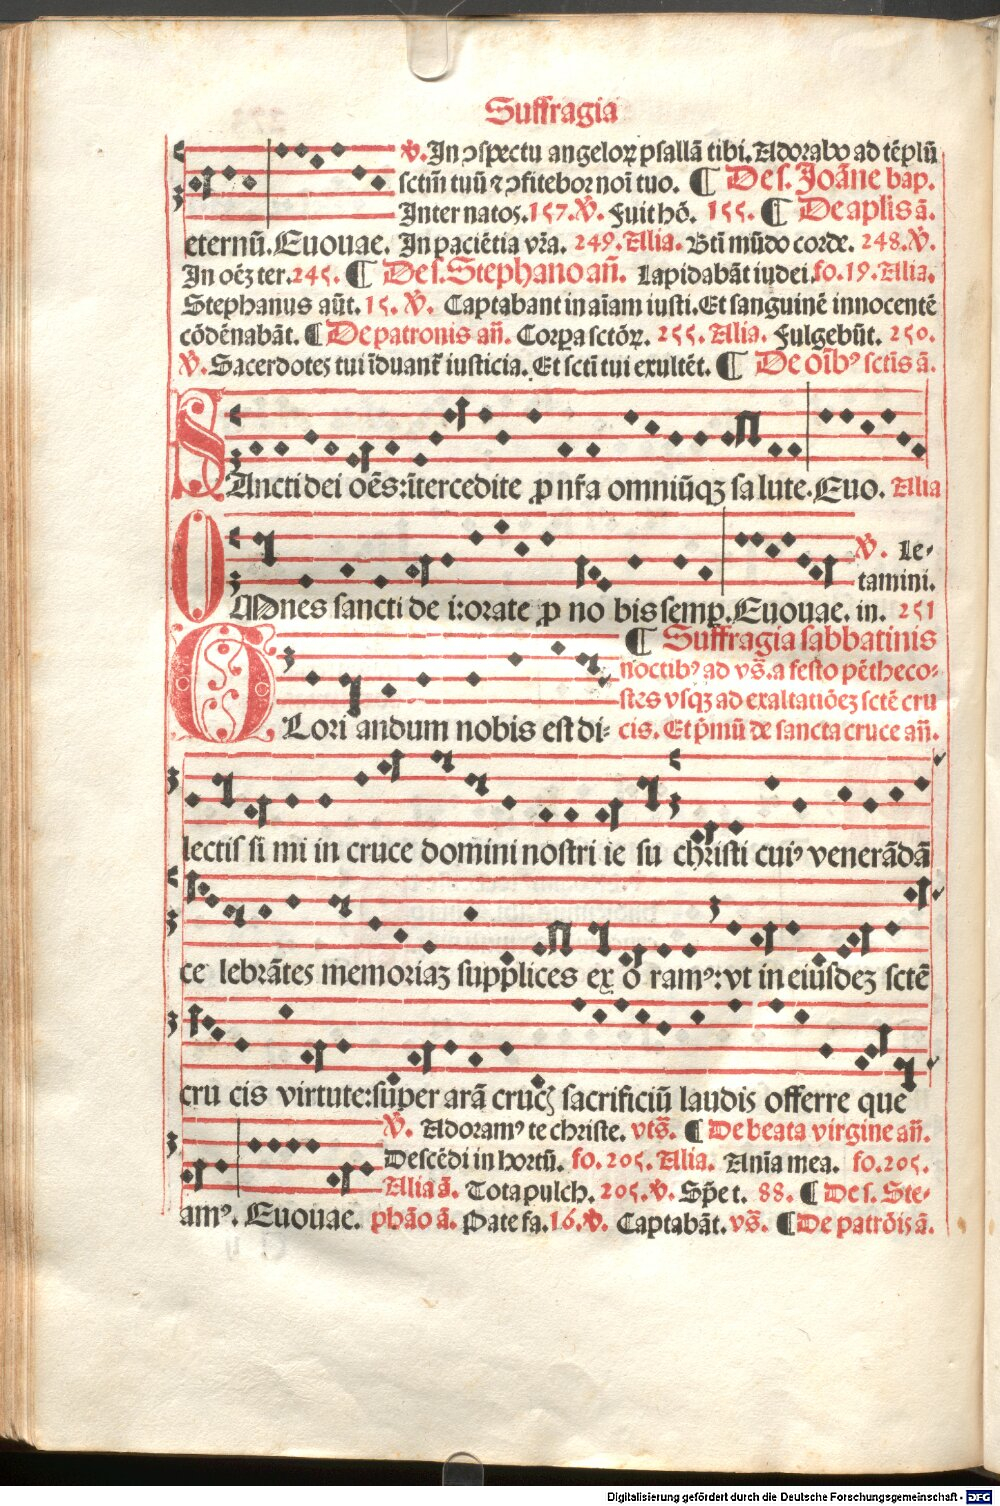 Suffragia
℣. In ↄspectu angeloꝝ psallā tibi. Adorabo ad tēplū
sctm̄ tuū ⁊ ↄfitebor noī tuo. ¶ De s. Joāne bap.
Inter natos. 157. ℣. Fuit hō. 155. ¶ De aplis ā.
eternū. Euouae. In paciētia vr̄a. 249. Alia. Bti mūdo corde. 248. ℣.
In oēꝫ ter. 245. ¶ De s. Stephano an̄. Lapidabāt iudei. fo. 19. Alia.
Stephanus aūt. 15. ℣. Captabant in aīam iusti. Et sanguinē innocentē
cōdēnabāt. ¶ De patronis an̄. Corꝑa sctōꝝ. 255. Alia. Fulgebūt. 250.
℣. Sacerdotes tui īduant᷑ iusticia. Et scti tui exultēt. ¶ De oībꝰ sctis ā.
SAncti dei oēs: ītercedite ꝓ nr̄a omniūqꝫ sa lute. Euo. Alia
℣. Le-
tamini.
OMnes sancti de i: orate ꝓ no bis semꝑ. Euouae. in. 251
¶ Suffragia sabbatinis
noctibꝰ ad vs̄. a festo pētheco-
stes vsqꝫ ad exaltatiōeꝫ sctē cru
GLori andum nobis est di- cis. Et pͥmū de sancta cruce an̄.
lectis si mi in cruce domini nostri ie su christi cuiꝰ venerādā
ce lebrātes memoriaꝫ supplices ex o ramꝰ: vt in eiusdeꝫ sctē
cru cis virtute: super arā cruc̄ sacrificiū laudis offerre que
℣. Adoramꝰ te christe. vts̄. ¶ De beata virgine an̄.
Descēdi in hortū. fo. 205. Alia. Anīa mea. fo. 205.
Alia ā. Tota pulch. 205. ℣. Sp̄e t. 88. ¶ De s. Ste-
amꝰ. Euouae. phāo ā. Pate fa. 16. ℣. Captabāt. vs̄. ¶ De patrōis ā.
Digitalisierung gefördert durch die Deutsche Forschungsgemeinschaft - DFG